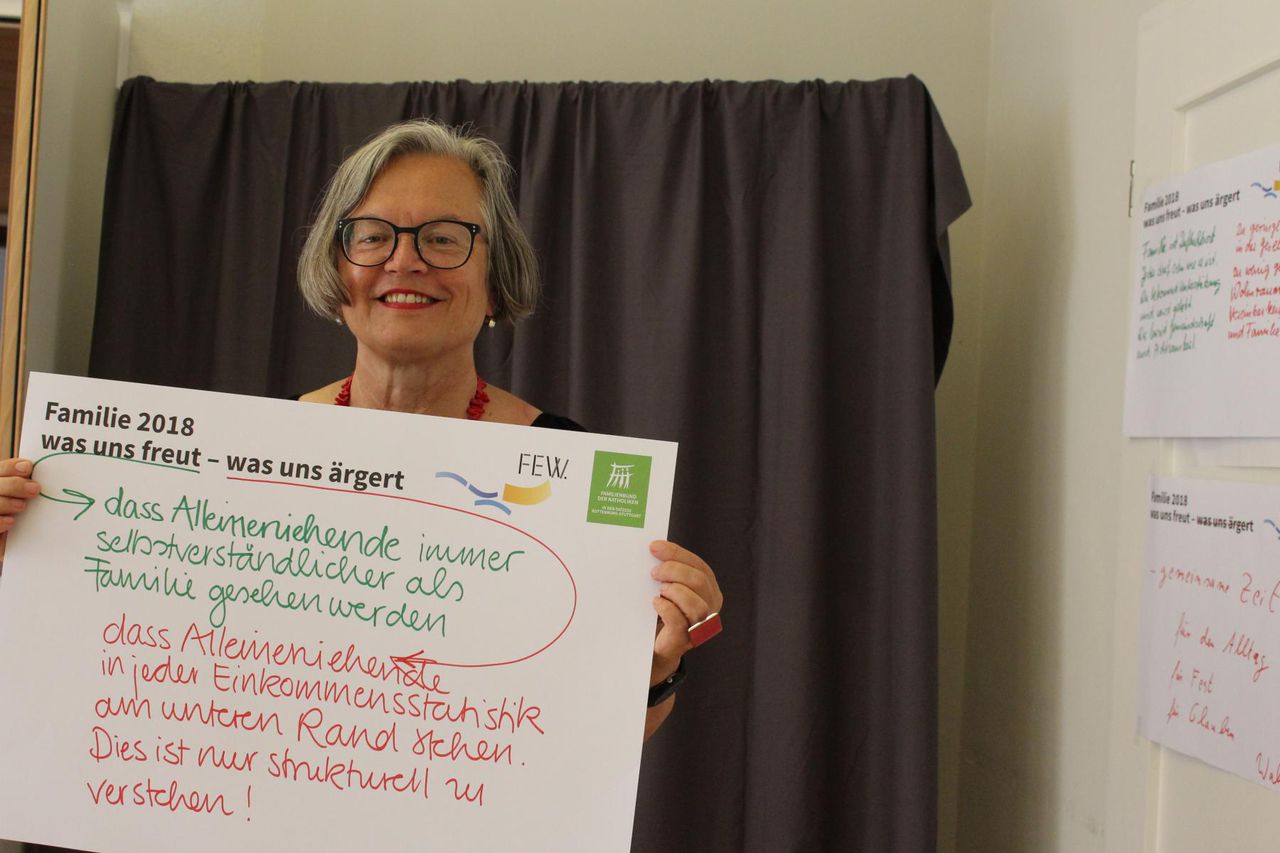 Familie 2018
was uns freut – was uns ärgert
FEW.
FAMILIENBUND
DER KATHOLIKEN
IN DER DIÖZESE
ROTTENBURG-STUTTGART
dass Alleinerziehende immer
selbstverständlicher als
Familie gesehen werden
dass Alleinerziehende
in jeder Einkommensstatistik
am unteren Rand stehen.
Dies ist nur strukturell zu
verstehen!
Familie 2018
was uns freut – was uns ärgert
Familie ist
und wird gelebt
und
Zu
in der
zu wenig
Wohnraum
und Familie
Familie 2018
was uns freut – was uns ärgert
- gemeinsame Zeit
für den Alltag
für Fest
für Glauben